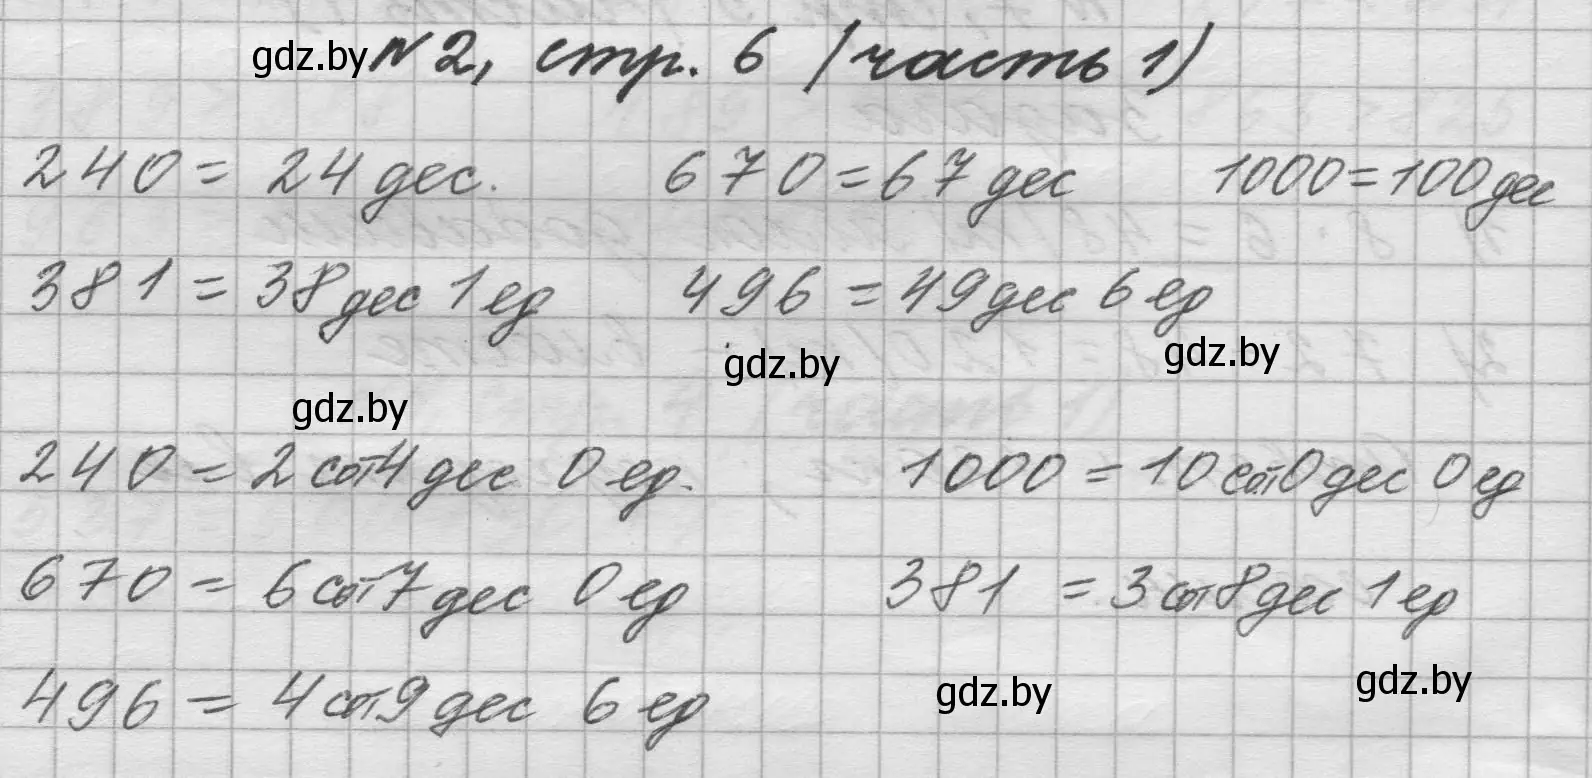 gdz.by № 2, стр. 6 (часть 1)
240 = 24 дес. 670 = 67 дес 1000 = 100 дес
381 = 38 дес 1 ед 496 = 49 дес 6 ед
gdz.by gdz.by
gdz.by
240 = 2 сот 4 дес 0 ед. 1000 = 10 сот 0 дес 0 ед
670 = 6 сот 7 дес 0 ед 381 = 3 сот 8 дес 1 ед
496 = 4 сот 9 дес 6 ед gdz.by gdz.by